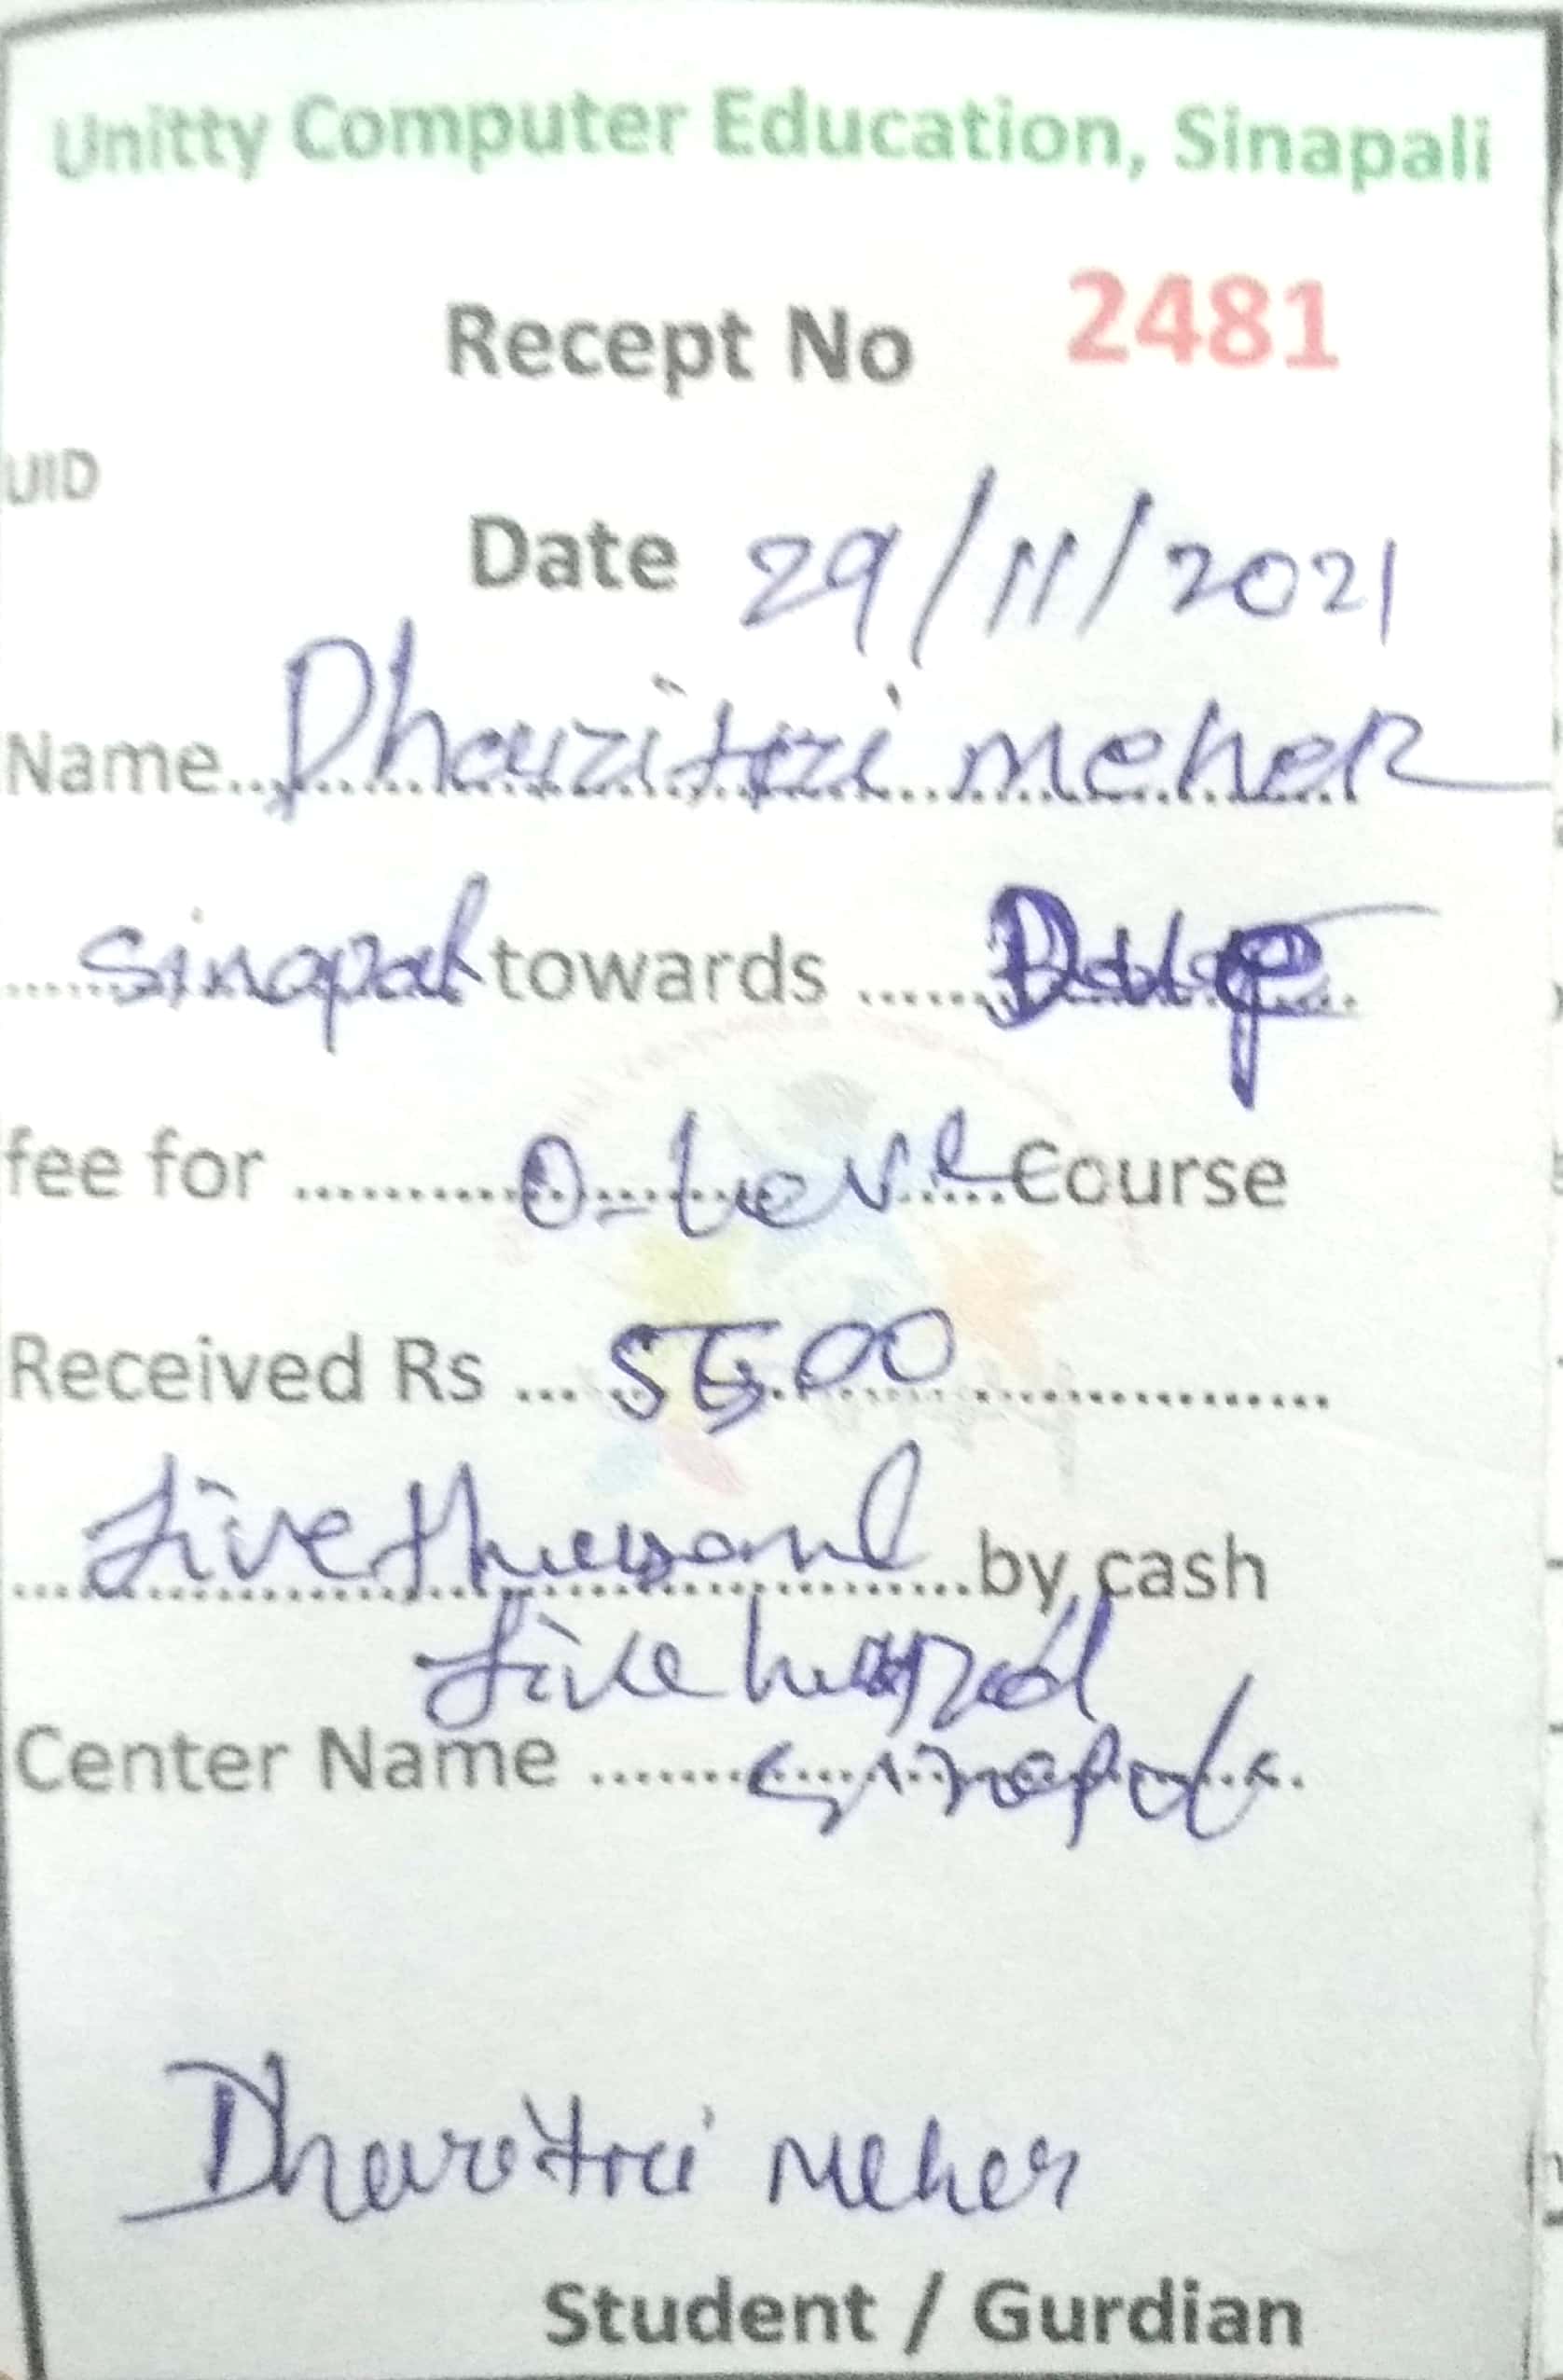 Unitty Computer Education, Sinapali
Recept No 2481
UID
Date 29/11/2021
Name Dharitri meher
Sinapali towards
fee for O-Level Course
Received Rs 5500
five thusand by cash
five hunrd
Center Name Sinapali
Dharitri Meher
Student / Gurdian